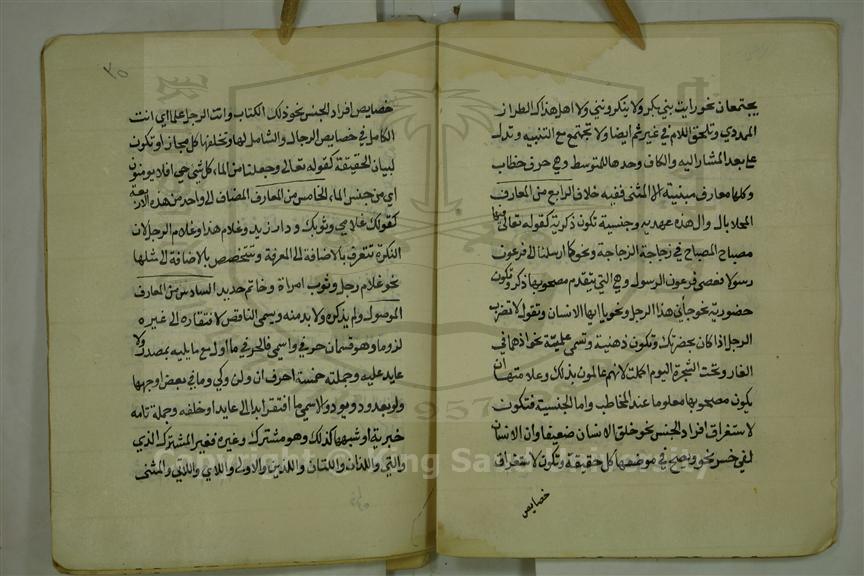 يجتمعان نحو رايت بني بكر ولا ينكرونني ولا اهل هذاك الطراز
الممددي وتلحق اللام في غير ثم ايضا ولا تجتمع مع التنبيه وتدل
على بعد المشار اليه والكاف وحدها للمتوسط وهي حرف خطاب
وكلها معارف مبنية الا المثنى ففيه خلاف الرابع من المعارف
المحلا بال وال هذه عهديه وجنسية تكون ذكرية كقوله تعالى فيها
مصباح المصباح في زجاجة الزجاجة ونحو كما ارسلنا الى فرعون
رسولا فعصى فرعون الرسول وهي التي يتقدم مصحوبها ذكر وتكون
حضورية نحو جاني هذا الرجل ونحو يا ايها الانسان وتقول لا تضرب
الرجل اذا كان بحضرتك وتكون ذهنية وتسمى علمية نحو اذ هما في
الغار وتحت الشجرة اليوم اكملت لانهم عالمون بذلك وعلامتها ان
يكون مصحوبها معلوما عند المخاطب واما الجنسية فتكون
لاستغراق افراد الجنس نحو خلق الانسان ضعيفا وان الانسان
لفي خسر نحو ويصح في موضعها كل حقيقة وتكون لاستغراق
خصايص
٣٥
خصايص افراد الجنس نحو ذلك الكتاب وانت الرجل علما اي انت
الكامل في خصايص الرجال والشامل لها وتخلفها كل مجاز او تكون
لبيان الحقيقة كقوله تعالى وجعلنا من الماء كل شي حي افلا يومنون
اي من جنس الماء الخامس من المعارف المضاف الى واحد من هذه الاربعة
كقولك غلامي وثوبك ودار زيد وغلام هذا وغلام الرجل لان
النكرة تتعرف بالاضافة الى المعرفة وتتخصص بالاضافة الى مثلها
نحو غلام رجل وثوب امراة وخاتم حديد السادس من المعارف
الموصول ولم يذكره ولا بد منه ويسمى الناقص لافتقاره الى غيره
لزوما وهو قسمان حرفي واسمي فالحرفي ما اول مع ما يليه بمصدر ولا
عايد عليه وجملته خمسة احرف ان وان وكي وما في بعض اوجهها
ولو بعد ود ويود والاسمي ما افتقر ابدا الى عايد او خلفه وجملة تامه
خبرية او شبهها كذلك وهو مشترك وغيره فغير المشترك الذي
والتي واللذان واللتان واللذين والاولى واللاي واللاتي والمثنى